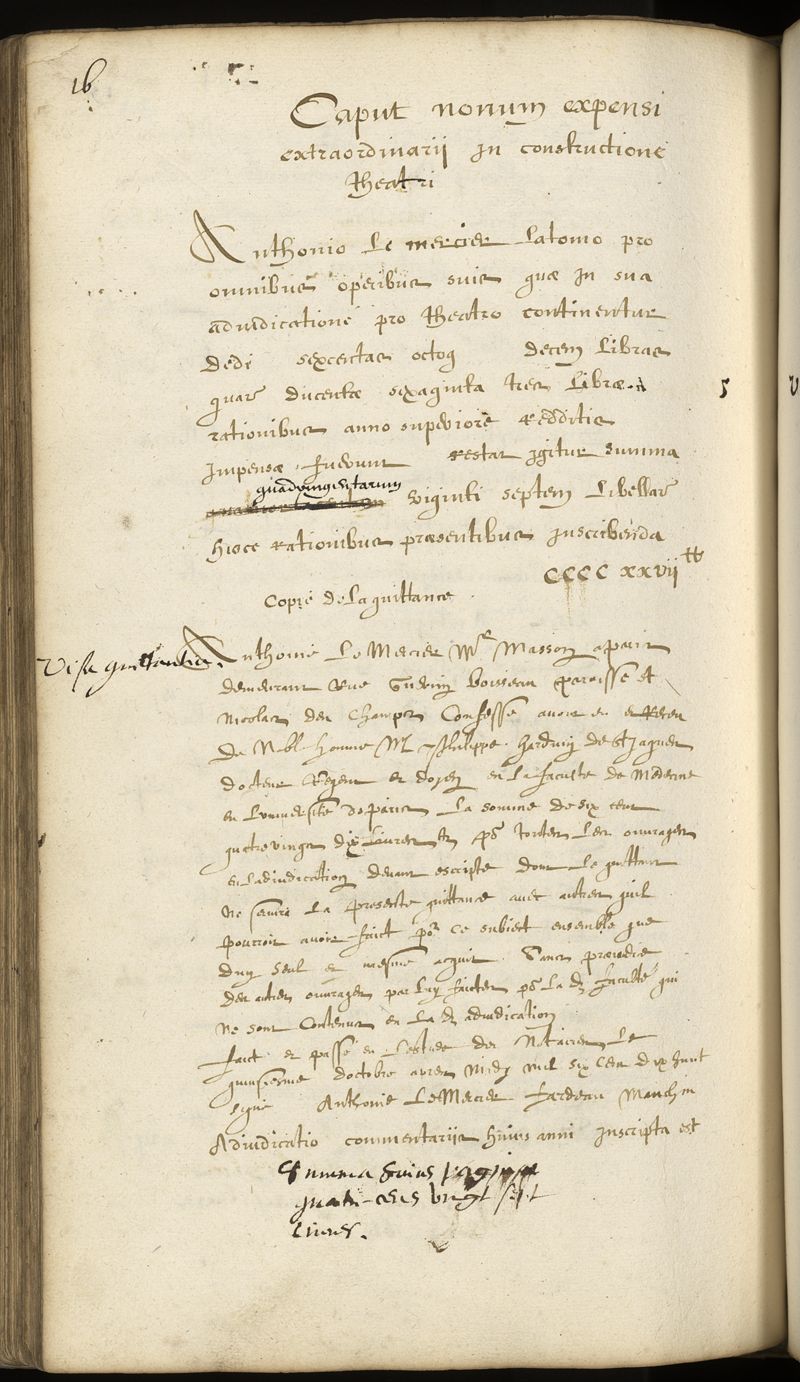 16
Caput nonum expensi
extraordinarii in constructione
theatri
Anthonio Le mercier Latomo pro
omnibus operibus suis quæ in sua
adiudicatione pro theatro continentur
dedi sexcentas octog decem libras
quare ducentæ sexaginta tres libræ in
rationibus anno superiore redditis
impensæ fuerunt restat igitur summa
quadringentarum
viginti septem libellar
hisce rationibus præsentibus inscribenda
CCCC XXVii tt
Copie de la quittance
Visa quittantia.
Anthoine Le Mercier Mre Masson a paris
demeurant rue Guerin boisseau paroisse st
Nicolas des Champs Confesse avoir eu et receu
De Noble homme Me Philippe Harduin de St Jaques
docteur Regent et doyen en la faculte de Medecine
en Luniversité de paris La somme de six cens
quatrevingts dix Livres tz por toutes les ouvrages
en Ladiudication devant escripte dont Le quittant
Ne servir La presente quittance avec autres quil
pourroit avoir faict por ce subiect ensemble que
dun seul et mesme acquit Sans preiudice
des autres ouvrages par luy faictes por La dte faculté qui
Ne sont Contenus en La dte adiudication
faict et passé en Lestude des Notaires Le
quinziesme doctobre apres midy mil six cens dix huit
signé Anthoine Le Mercier Fardeau Manchin
Adiudicatio commentariis huius anni inscripta est
Summa huius paginæ
quatre cens vingt sept
Livres.